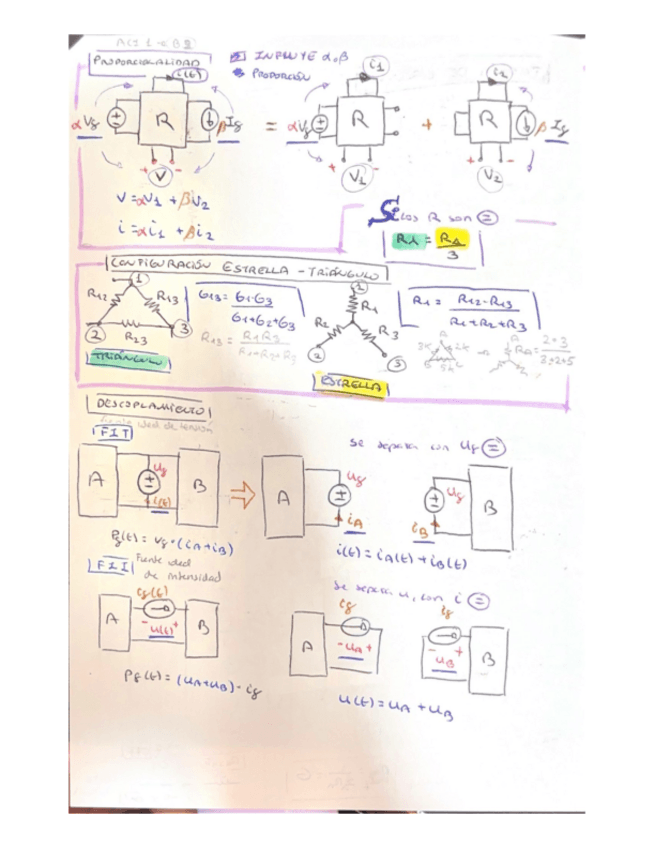 PROPORCIONALIDAD
INFLUYE α,β
PROPORCIÓN
i(t)
i1
i2
αVg
R
βIg
=
αVg
R
+
R
βIg
+ V -
+ V1 -
+ V2 -
V = αV1 + βV2
i = αi1 + βi2
Si los R son =
Rλ = RΔ/3
CONFIGURACIÓN ESTRELLA - TRIÁNGULO
1
R12
R13
2
R23
3
TRIÁNGULO
G13 = G1·G3 / G1+G2+G3
1
R1
R2
R3
2
3
ESTRELLA
R1 = R12·R13 / R1+R2+R3
DESCOPLAMIENTO
fuente ideal de tensión
FIT
se separa con Ug =
A
Ug
B
i(t)
A
Ug
iA
Ug
B
iB
Pg(t) = Vg·(iA+iB)
i(t) = iA(t) + iB(t)
FII
Fuente ideal
de intensidad
se separa u, con i =
ig(t)
A
- u(t) +
B
ig
A
- uA +
ig
- uB +
B
Pg(t) = (uA+uB)·ig
u(t) = uA + uB